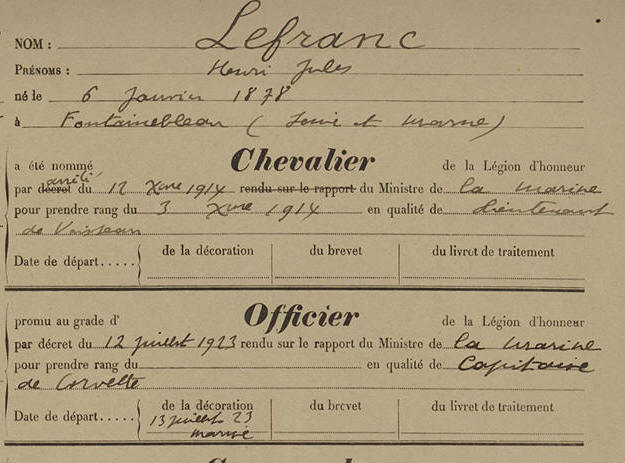 NOM : Lefranc
PRÉNOMS : Henri Jules
né le 6 Janvier 1878
à Fontainebleau ( Seine et Marne )
Chevalier
a été nommé de la Légion d'honneur
arrêté
par décret du 12 Xbre 1914 rendu sur le rapport du Ministre de la Marine
pour prendre rang du 3 Xbre 1914 en qualité de Lieutenant
de Vaisseau
Date de départ..... de la décoration du brevet du livret de traitement
Officier
promu au grade d' de la Légion d'honneur
par décret du 12 juillet 1923 rendu sur le rapport du Ministre de la Marine
pour prendre rang du en qualité de Capitaine
de Corvette
Date de départ..... de la décoration du brevet du livret de traitement
13 juillet 23
marine